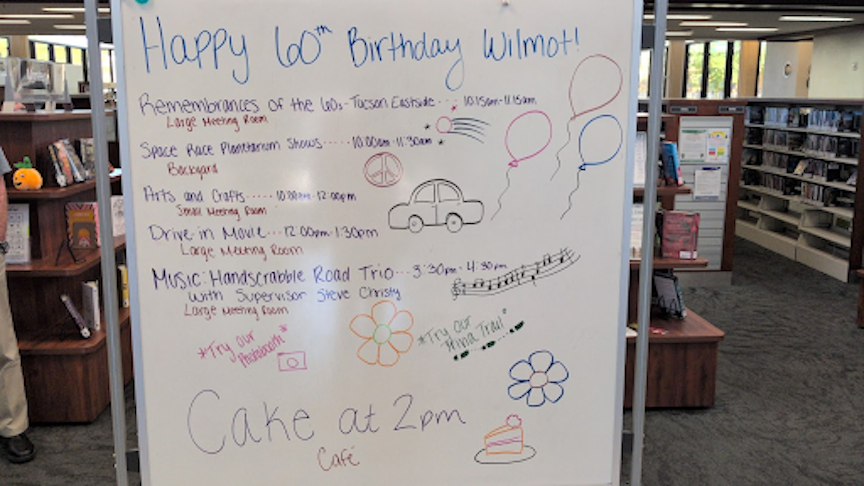 Happy 60th Birthday Wilmot!
Remembrances of the 60s - Tucson Eastside... 10:15am-11:15am
Large Meeting Room
Space Race Planetarium Shows..... 10:00am-11:30am
Backyard
Arts and Crafts..... 10:00am-12:00pm
Small Meeting Room
Drive-in Movie... 12:00pm-1:30pm
Large Meeting Room
Music: Handscrabble Road Trio... 3:30pm - 4:30pm
With Supervisor Steve Christy
Large Meeting Room
*Try our Photobooth*
*Try our
Trail*
Cake at 2pm
Café